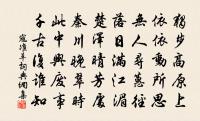 獨步高原上
依依動所思
無人尋徑
落日滿江湄
楚澤芳處
秦川晚時
此中興廢事
千古復誰知
寇准羊詞典網集